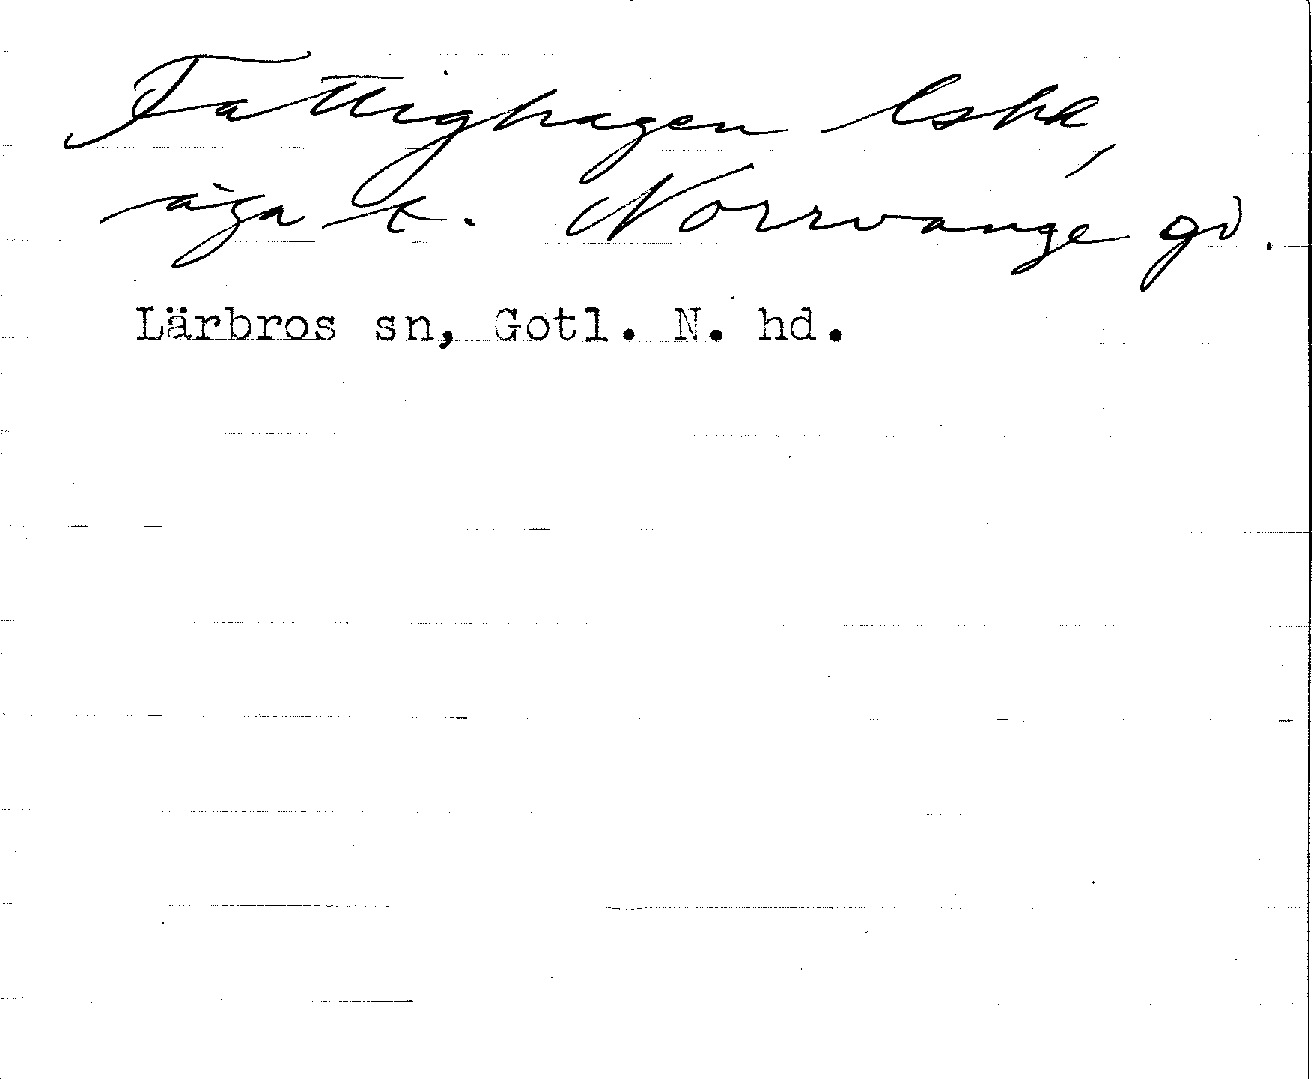 Fattighagen lshl,
äga t. Norrvange gd.
Lärbros sn, Gotl. N. hd.